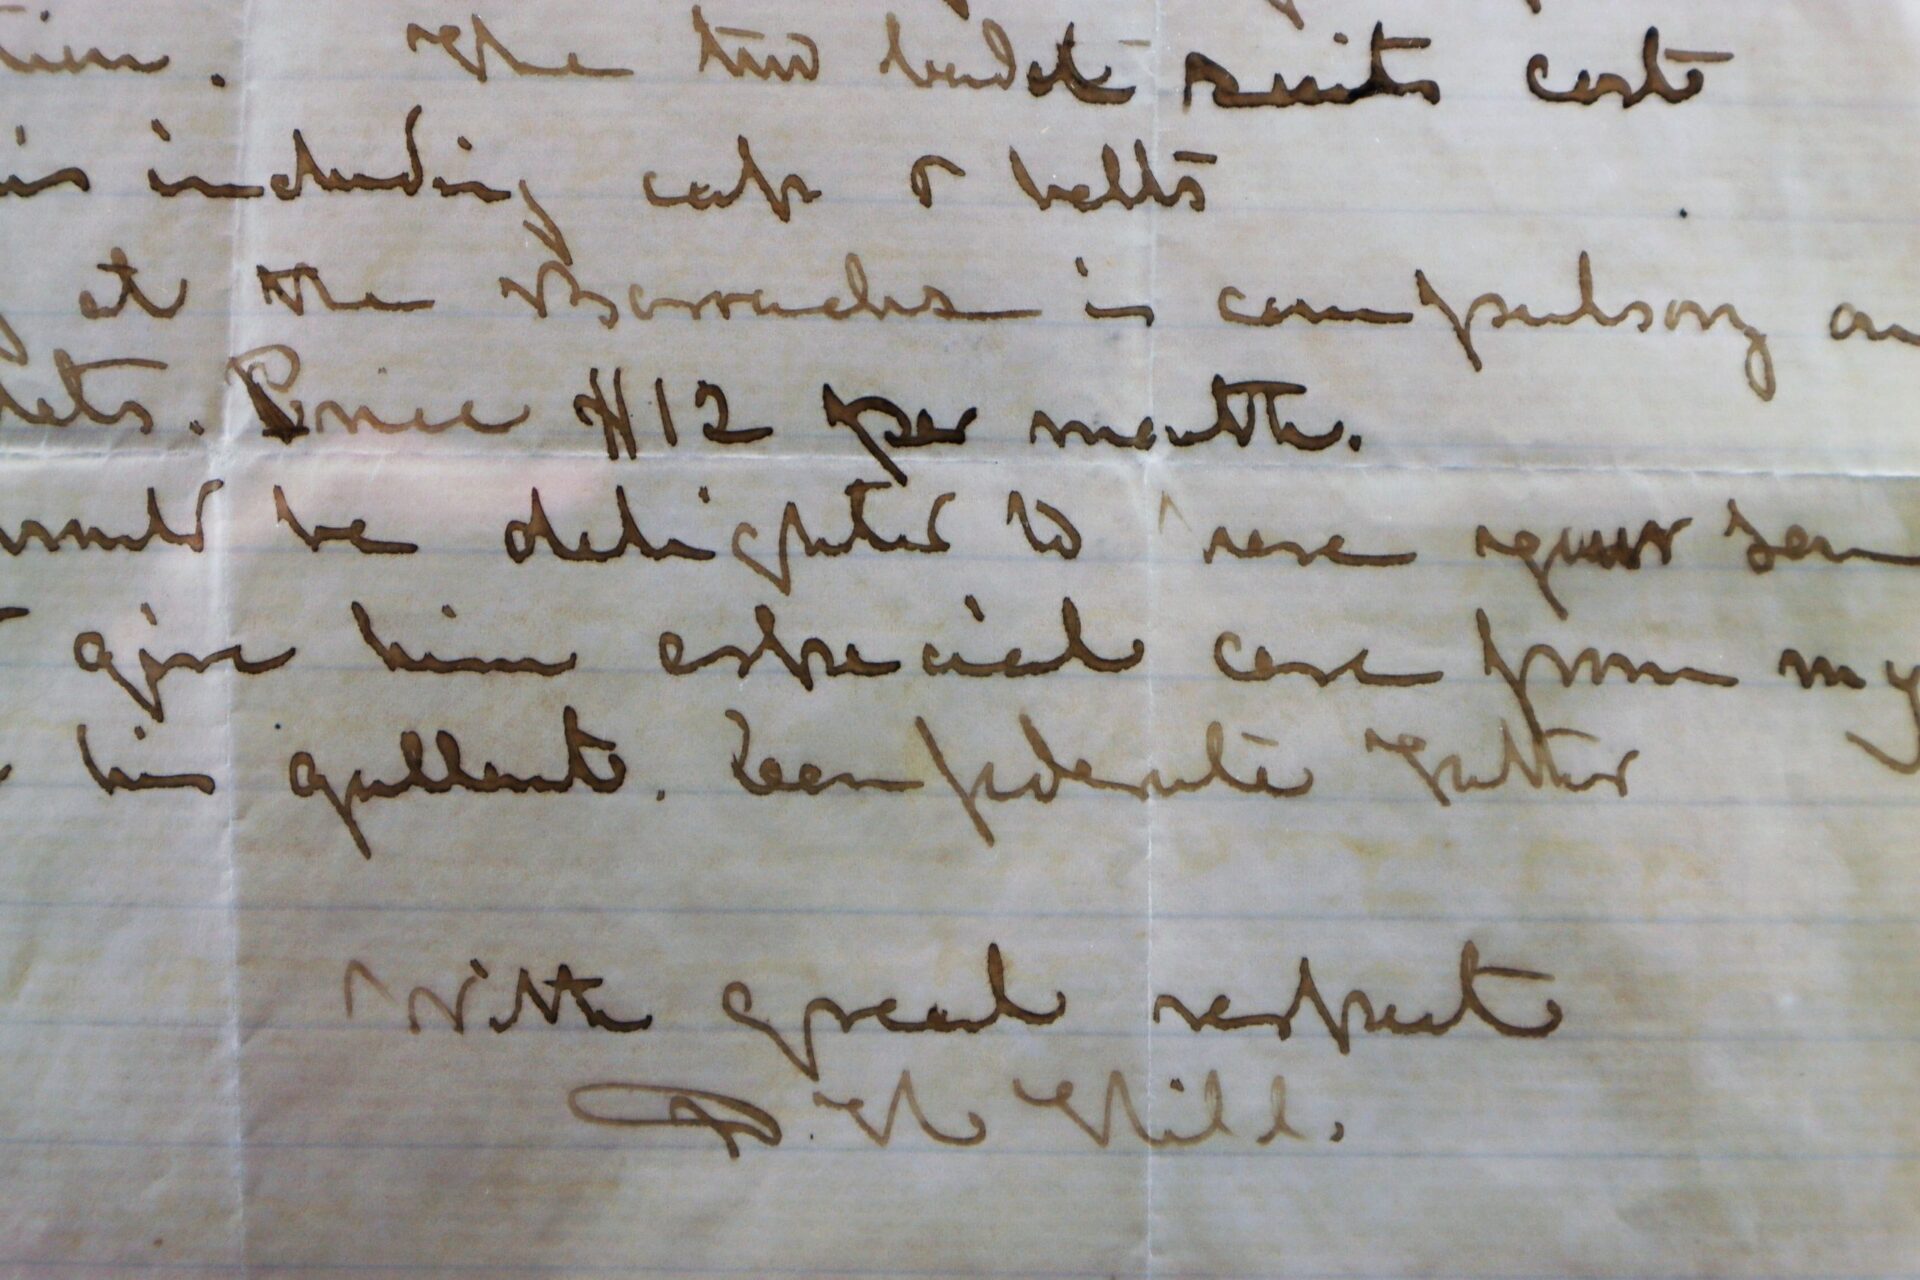 tion. The two cadet suits cost
is including cap & belts
at the Barracks is compulsory on
dets. Price $12 per month.
would be delighted to have your son
give him especial care from my
his gallant. Confederate father
With great respect
D. H. Hill.